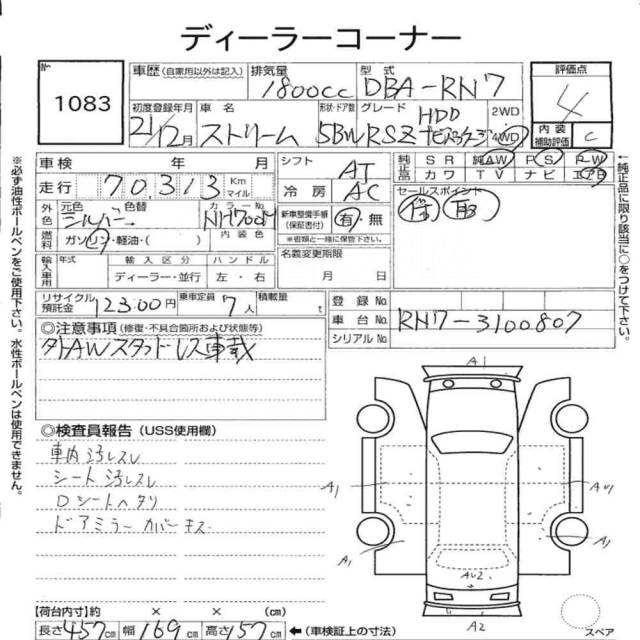 ディーラーコーナー
№
1083
車歴 (自家用以外は記入)
排気量
1800cc
型式
DBA-RN7
評価点
4
初度登録年月
21/12月
車名
ストリーム
形状・ドア数
5BW
グレード
RSZ HDD
2WD
4WD
内装補助評価
C
車検 年 月
シフト
AT
純正品
SR 純AW PS P-W
カワ TV ナビ エアB
走行
70,313
Km
マイル
冷房
AC
セールスポイント
保 取
外色
元色
シルバー
色替
カラーNo.
NH700M
新車整備手帳
(保証書付)
有・無
※書類と一緒に保管下さい。
燃料
ガソリン・軽油・( )
内装色
名義変更期限
月 日
輸入車用
年式
輸入区分
ディーラー・並行
ハンドル
左・右
リサイクル預託金
12300円
乗車定員
7人
積載量
t
登録No.
車台No.
RN7-3100807
シリアルNo.
◎注意事項(修復・不具合箇所および状態等)
外AWスタッドレス車載
◎検査員報告(USS使用欄)
車内汚レスレ
シート汚レスレ
Dシートヘタリ
ドアミラーカバーキズ
【荷台内寸】約 × × (cm)
長さ457cm 幅169cm 高さ157cm ←(車検証上の寸法)
A1
A1
AU1
A1
A1
AU2
A2
スペア
※必ず油性ボールペンをご使用下さい。水性ボールペンは使用できません。
←純正品に限り該当に○をつけて下さい。